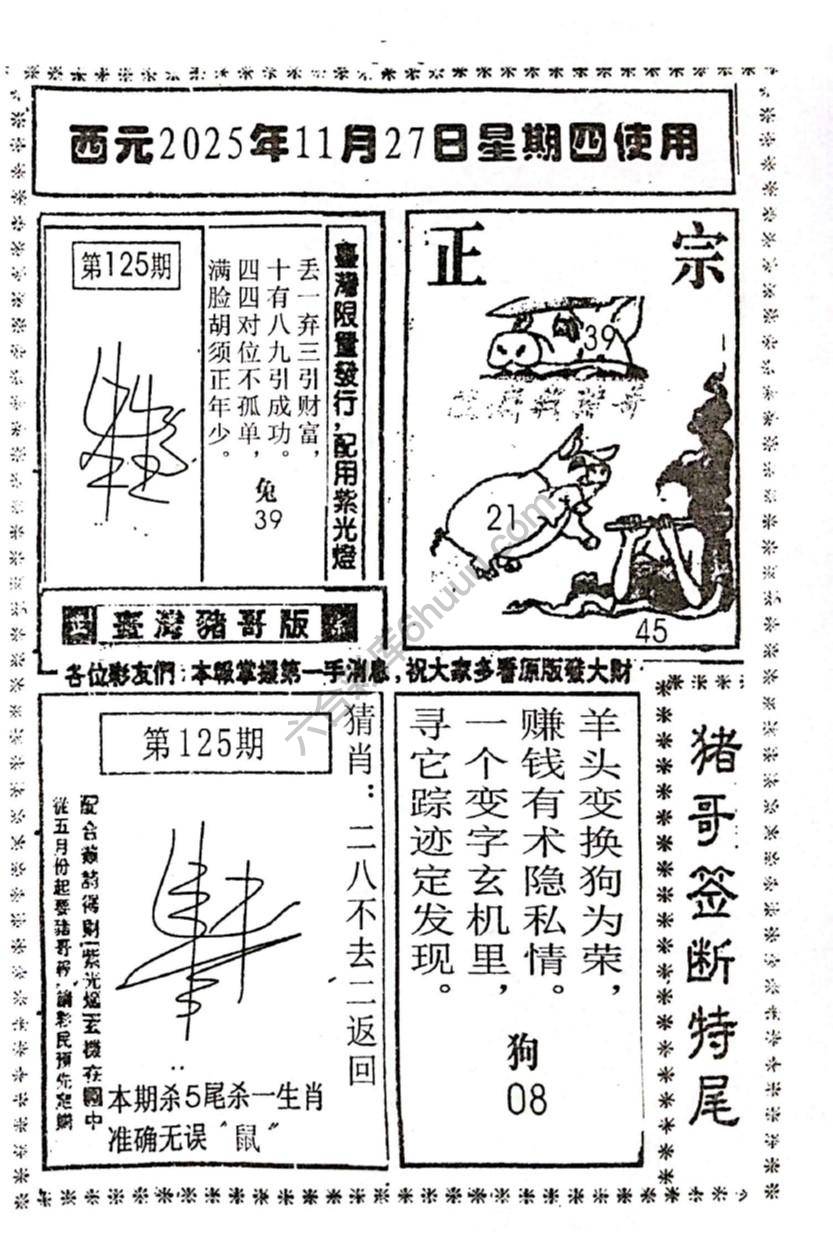 西元2025年11月27日星期四使用
第125期
臺灣限量發行，配用紫光燈
丢一弃三引财富，
十有八九引成功。
四四对位不孤单，
满脸胡须正年少。
兔
39
正宗
39
21
45
臺灣豬哥版
各位彩友們：本報掌握第一手消息，祝大家多看原版發大財
第125期
猜肖：二八不去二返回
從五月份起要豬哥報，請彩民預先定購
本期杀5尾杀一生肖
准确无误“鼠”
羊头变换狗为荣，
赚钱有术隐私情。
一个变字玄机里，
寻它踪迹定发现。
狗
08
猪哥签断特尾
六合彩库6huuu.com